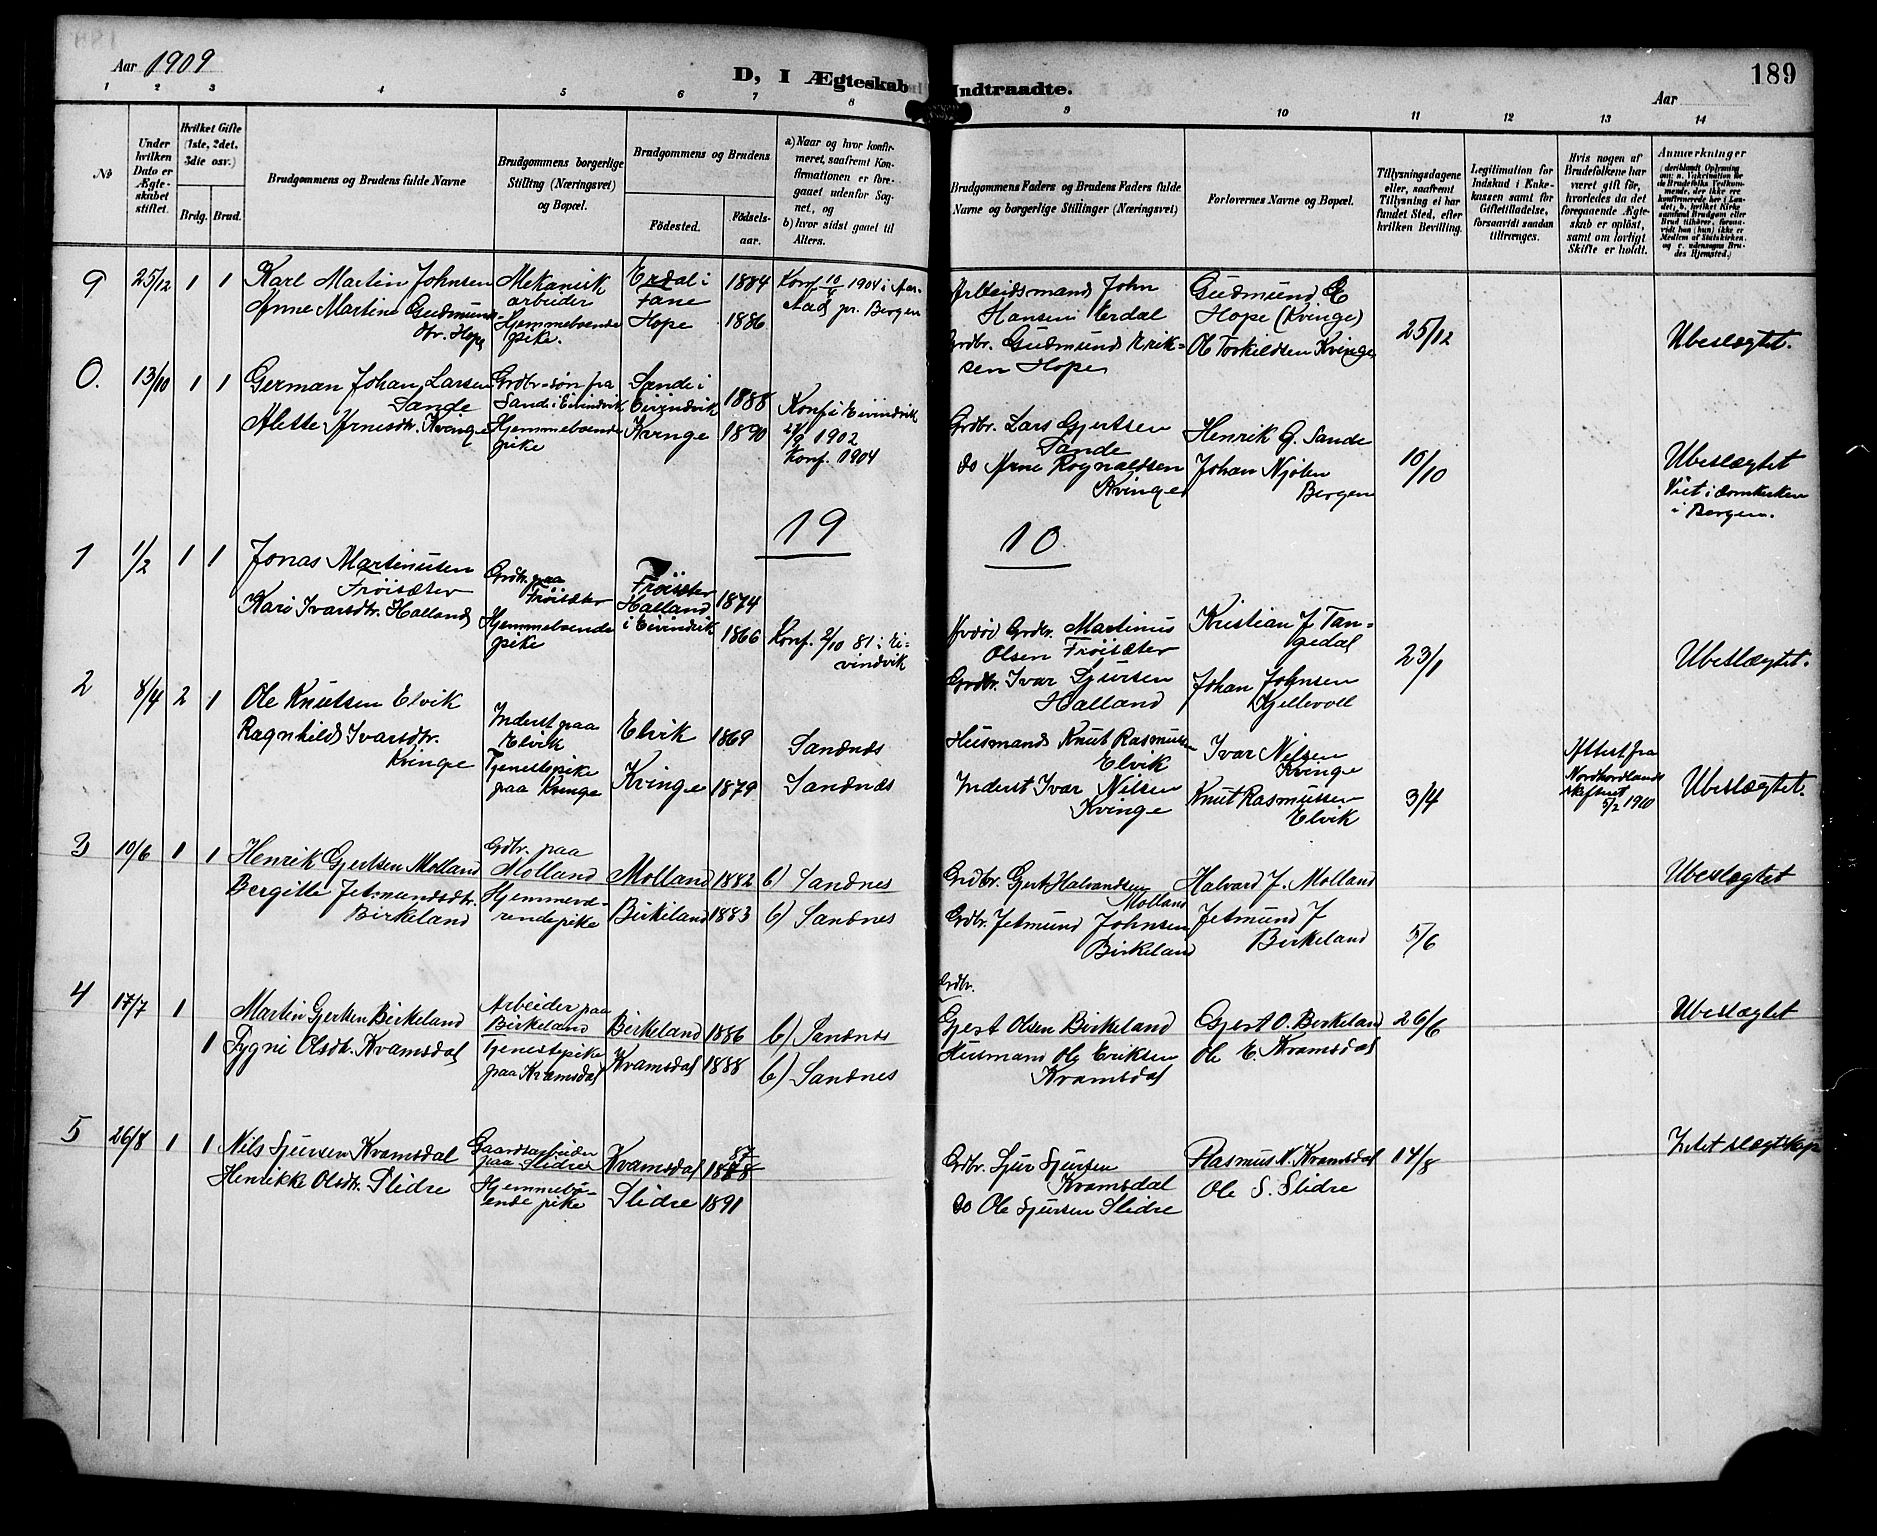 Aar 1909
D, I Ægteskab Indtraadte.
189
Aar
1 2 3 4 5 6 7 8 9 10 11 12 13 14
No
Under hvilken Dato er Ægteskabet stiftet.
Hvilket Gifte (1ste, 2det, 3die osv.)
Brdg. Brud.
Brudgommens og Brudens fulde Navne
Brudgommens borgerlige Stilling (Næringsvei) og Bopæl.
Brudgommens og Brudens
Födested.
Födselsaar.
a) Naar og hvor konfirmeret, saafremt Konfirmationen er foregaaet udenfor Sognet, og
b) hvor sidst gaaet til Alters.
Brudgommens Faders og Brudens Faders fulde Navne og borgerlige Stillinger (Næringsvei)
Forlovernes Navne og Bopæl.
Tillysningsdagene eller, saafremt Tillysning ei har fundet Sted, efter hvilken Bevilling.
Legitimation for Indskud i Enkekassen samt for Giftetilladelse, forsaavidt saadan tiltrænges.
Hvis nogen af Brudefolkene har været gift för, hvorledes da det foregaaende Ægteskab er oplöst, samt om lovligt Skifte er holdt.
Anmærkninger
9 25/12 1 1
Karl Martin Johnsen
Anne Martine Gudmundsdtr. Hope
Mekanisk arbeider
Hjemmeboende pike.
Erdal i Fane 1884
Hope 1886
Konf. 10/4 1904 i Aarstad pr. Bergen
Arbeidsmand John Hansen Erdal
Grdbr. Gudmund Eriksen Hope
Gudmund E Hope (Kvinge)
Ole Torkildsen Kvinge
25/12
Ubeslægtet.
0. 13/10 1 1
German Johan Larsen Sande
Alette Arnesdtr. Kvinge
Grdbr-søn fra Sande i Eivindvik
Hjemmeboende pike
Sande i Eivindvik 1888
Kvinge 1890
Konf i Eivindvik
1902
Konf. 1904
Grdbr. Lars Gjertsen Sande
do Arne Rognaldsen Kvinge
Henrik G. Sande
Johan Njøten Bergen
10/10
Ubeslægtet
Viet i domkirken i Bergen.
19 10.
1 1/2 1 1
Jonas Martinusen Frøisæter
Kari Ivarsdtr. Halland
Grdbr. paa Frøisæter
Hjemmeboende pike
Frøisæter 1874
Halland i Eivindvik 1866
Konf. 2/10 81 i Eivindvik
Avdød Grdbr. Martinus Olsen Frøisæter
Grdbr. Ivar Sjursen Halland
Kristian J Tangedal
Johan Johnsen Kjellevoll
23/1
Ubeslægtet.
2 8/4 2 1
Ole Knutsen Elvik
Ragnhild Ivarsdtr. Kvinge
Inderst paa Elvik
Tjenestepike paa Kvinge
Elvik 1869
Kvinge 1879
Sandnes
Sandnes
Husmand Knut Rasmussen Elvik
Inderst Ivar Nilsen Kvinge
Ivar Nilsen Kvinge
Knut Rasmussen Elvik
3/4
Attest fra Nordhordlands skifteret 5/2 1910
Ubeslægtet.
3 10/6 1 1
Henrik Gjertsen Molland
Bergitte Jetmundsdtr. Birkeland
Grdbr. paa Molland
Hjemmeværende pike
Molland 1882
Birkeland 1883
b) Sandnes
b) Sandnes
Grdbr. Gjert Halvardsen Molland
Grdbr. Jetmund Johnsen Birkeland
Halvard J. Molland
Jetmund J Birkeland
5/6
Ubeslægtet
4 17/7 1
1
Martin Gjertsen Birkeland
Sygni Olsdtr. Kvamsdal
Arbeider paa Birkeland
Tjenestepike paa Kvamsdal
Birkeland 1886
Kvamsdal 1888
b) Sandnes
b) Sandnes
Grdbr.
Gjert Olsen Birkeland
Husmand Ole Eriksen Kvamsdal
Gjert O. Birkeland
Ole E. Kvamsdal
26/6
Ubeslægtet
5 26/8 1 1
Nils Sjursen Kvamsdal
Henrikke Olsdtr. Slidre
Gaardsarbeider paa Slidre
Hjemmeboende pike
Kvamsdal 1888 87
Slidre 1891
Grdbr. Sjur Sjursen Kvamsdal
do Ole Sjursen Slidre
Rasmus N. Kvamsdal
Ole S. Slidre
14/8
Intet slægtskap